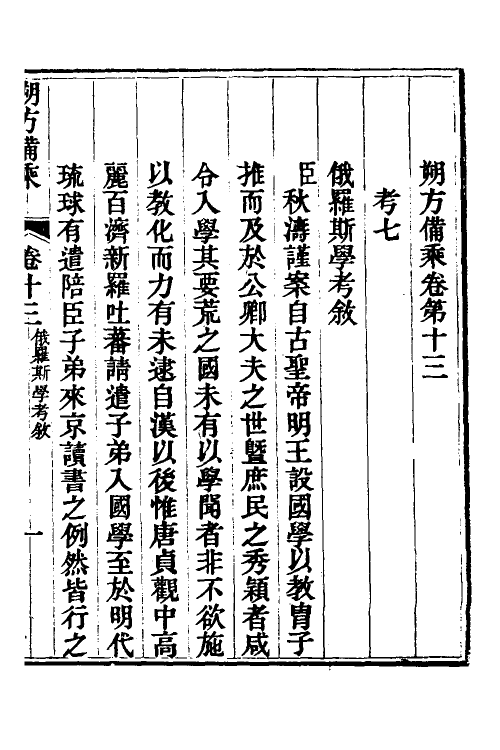 朔方備乘卷第十三
考七
俄羅斯學考敘
臣秋濤謹案自古聖帝明王設國學以教胄子
推而及於公卿大夫之世暨庶民之秀穎者咸
令入學其要荒之國未有以學聞者非不欲施
以教化而力有未逮自漢以後惟唐貞觀中高
麗百濟新羅吐蕃請遣子弟入國學至於明代
琉球有遣陪臣子弟來京讀書之例然皆行之
朔方備乘 卷十三 俄羅斯學考敘 一